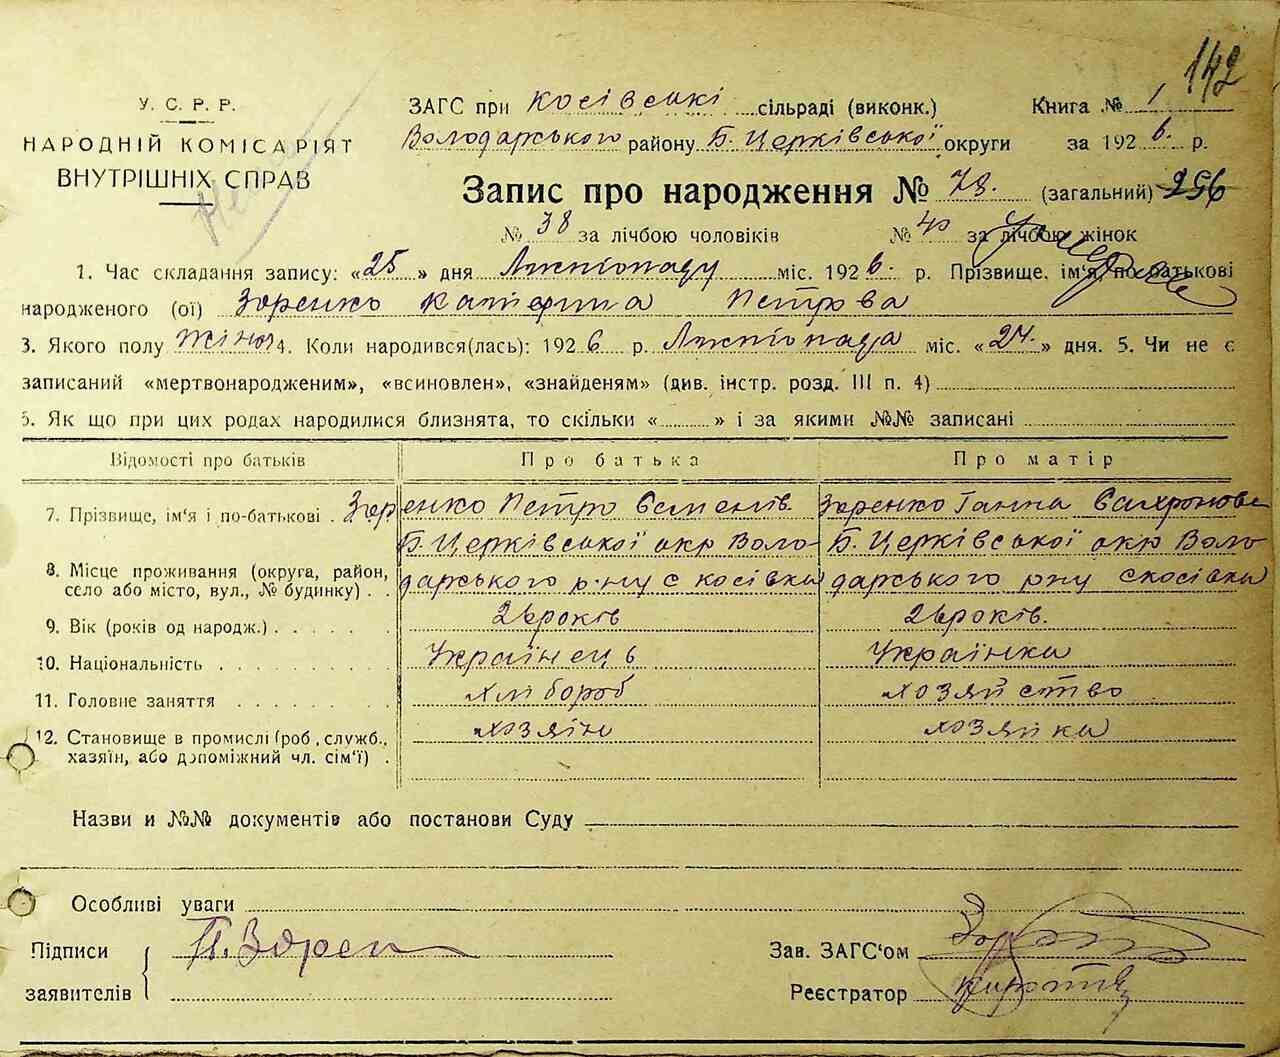 142
У. С. Р. Р.
НАРОДНІЙ КОМІСАРІЯТ
ВНУТРІШНІХ СПРАВ
ЗАГС при Косівські сільраді (виконк.) Книга № 1
Володарського району Б. Церківської округи за 1926 р.
Запис про народження № 78. (загальний) 256
№ 38 за лічбою чоловіків № 40 за лічбою жінок
1. Час складання запису: «25» дня Листопаду міс. 1926. р. Прізвище, ім'я, по-батькові
народженого (ої) Зоренко Катерина Петрова
3. Якого полу жіноч 4. Коли народився(лась): 1926 р. Листопада міс. «24.» дня. 5. Чи не є
записаний «мертвонародженим», «всиновлен», «знайденям» (див. інстр. розд. III п. 4)
5. Як що при цих родах народилися близнята, то скільки «......» і за якими №№ записані
Відомості про батьків Про батька Про матір
7. Прізвище, ім'я і по-батькові . Зоренко Петро Семенів. Зоренко Ганна
Б. Церківської окр Воло- Б. Церківської окр Воло-
8. Місце проживання (округа, район, село або місто, вул., № будинку) . . дарського р-ну с Косівка дарського рну с Косівка
9. Вік (років од народж.) . . . . . . 26 років 26 років.
10. Національність . . . . . . . . . Українець Українка
11. Головне заняття . . . . . . . . хлібороб хозяйство
12. Становище в промислі (роб., служб., хазяїн, або допоміжний чл. сім'ї) . хозяін хозяйка
Назви и №№ документів або постанови Суду
Особливі уваги
Підписи заявителів П. Зорен
Зав. ЗАГС'ом
Реєстратор